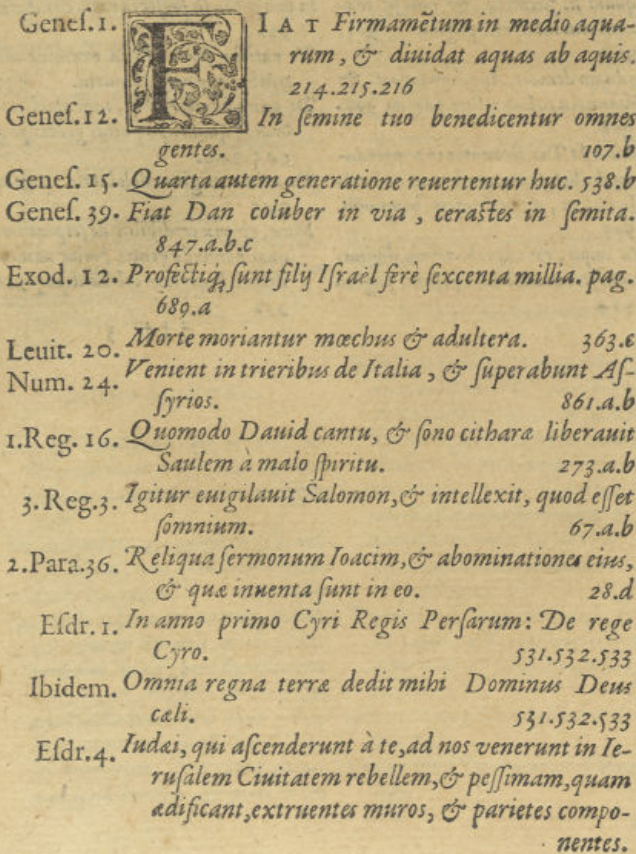 Geneſ.1. FIAT Firmamẽtum in medio aqua-
rum, & diuidat aquas ab aquis.
214.215.216
Geneſ.12. In ſemine tuo benedicentur omnes
gentes. 107.b
Geneſ. 15. Quarta autem generatione reuertentur huc. 538.b
Geneſ. 39. Fiat Dan coluber in via, ceraſtes in ſemita.
847.a.b.c
Exod. 12. Profectiq́; ſunt filij Iſraël ferè ſexcenta millia. pag.
689.a
Leuit. 20. Morte moriantur mœchus & adultera. 363.e
Num. 24. Venient in trieribus de Italia, & ſuperabunt Aſ-
ſyrios. 861.a.b
1.Reg. 16. Quomodo Dauid cantu, & ſono citharæ liberauit
Saulem à malo ſpiritu. 273.a.b
3.Reg.3. Igitur euigilauit Salomon, & intellexit, quod eſſet
ſomnium. 67.a.b
2.Para.36. Reliqua ſermonum Ioacim, & abominationes eius,
& quæ inuenta ſunt in eo. 28.d
Eſdr. 1. In anno primo Cyri Regis Perſarum: De rege
Cyro. 531.532.533
Ibidem. Omnia regna terræ dedit mihi Dominus Deus
cæli. 531.532.533
Eſdr.4. Iudæi, qui aſcenderunt à te, ad nos venerunt in Ie-
ruſalem Ciuitatem rebellem, & peſſimam, quam
ædificant, extruentes muros, & parietes compo-
nentes.